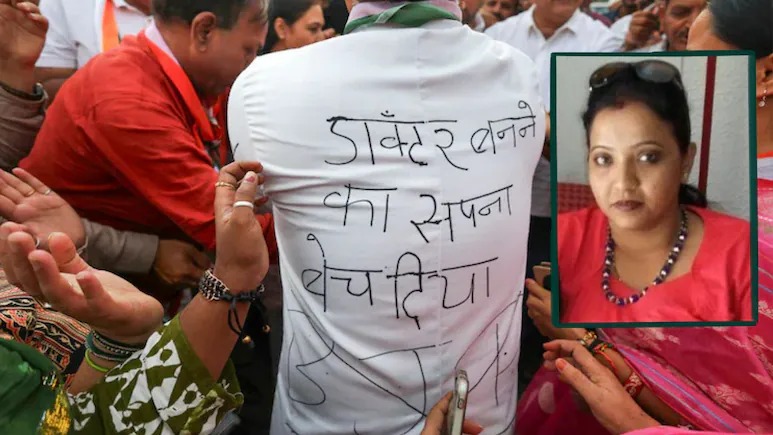 डाक्ँटर बनने
का सपना
बेच दिया